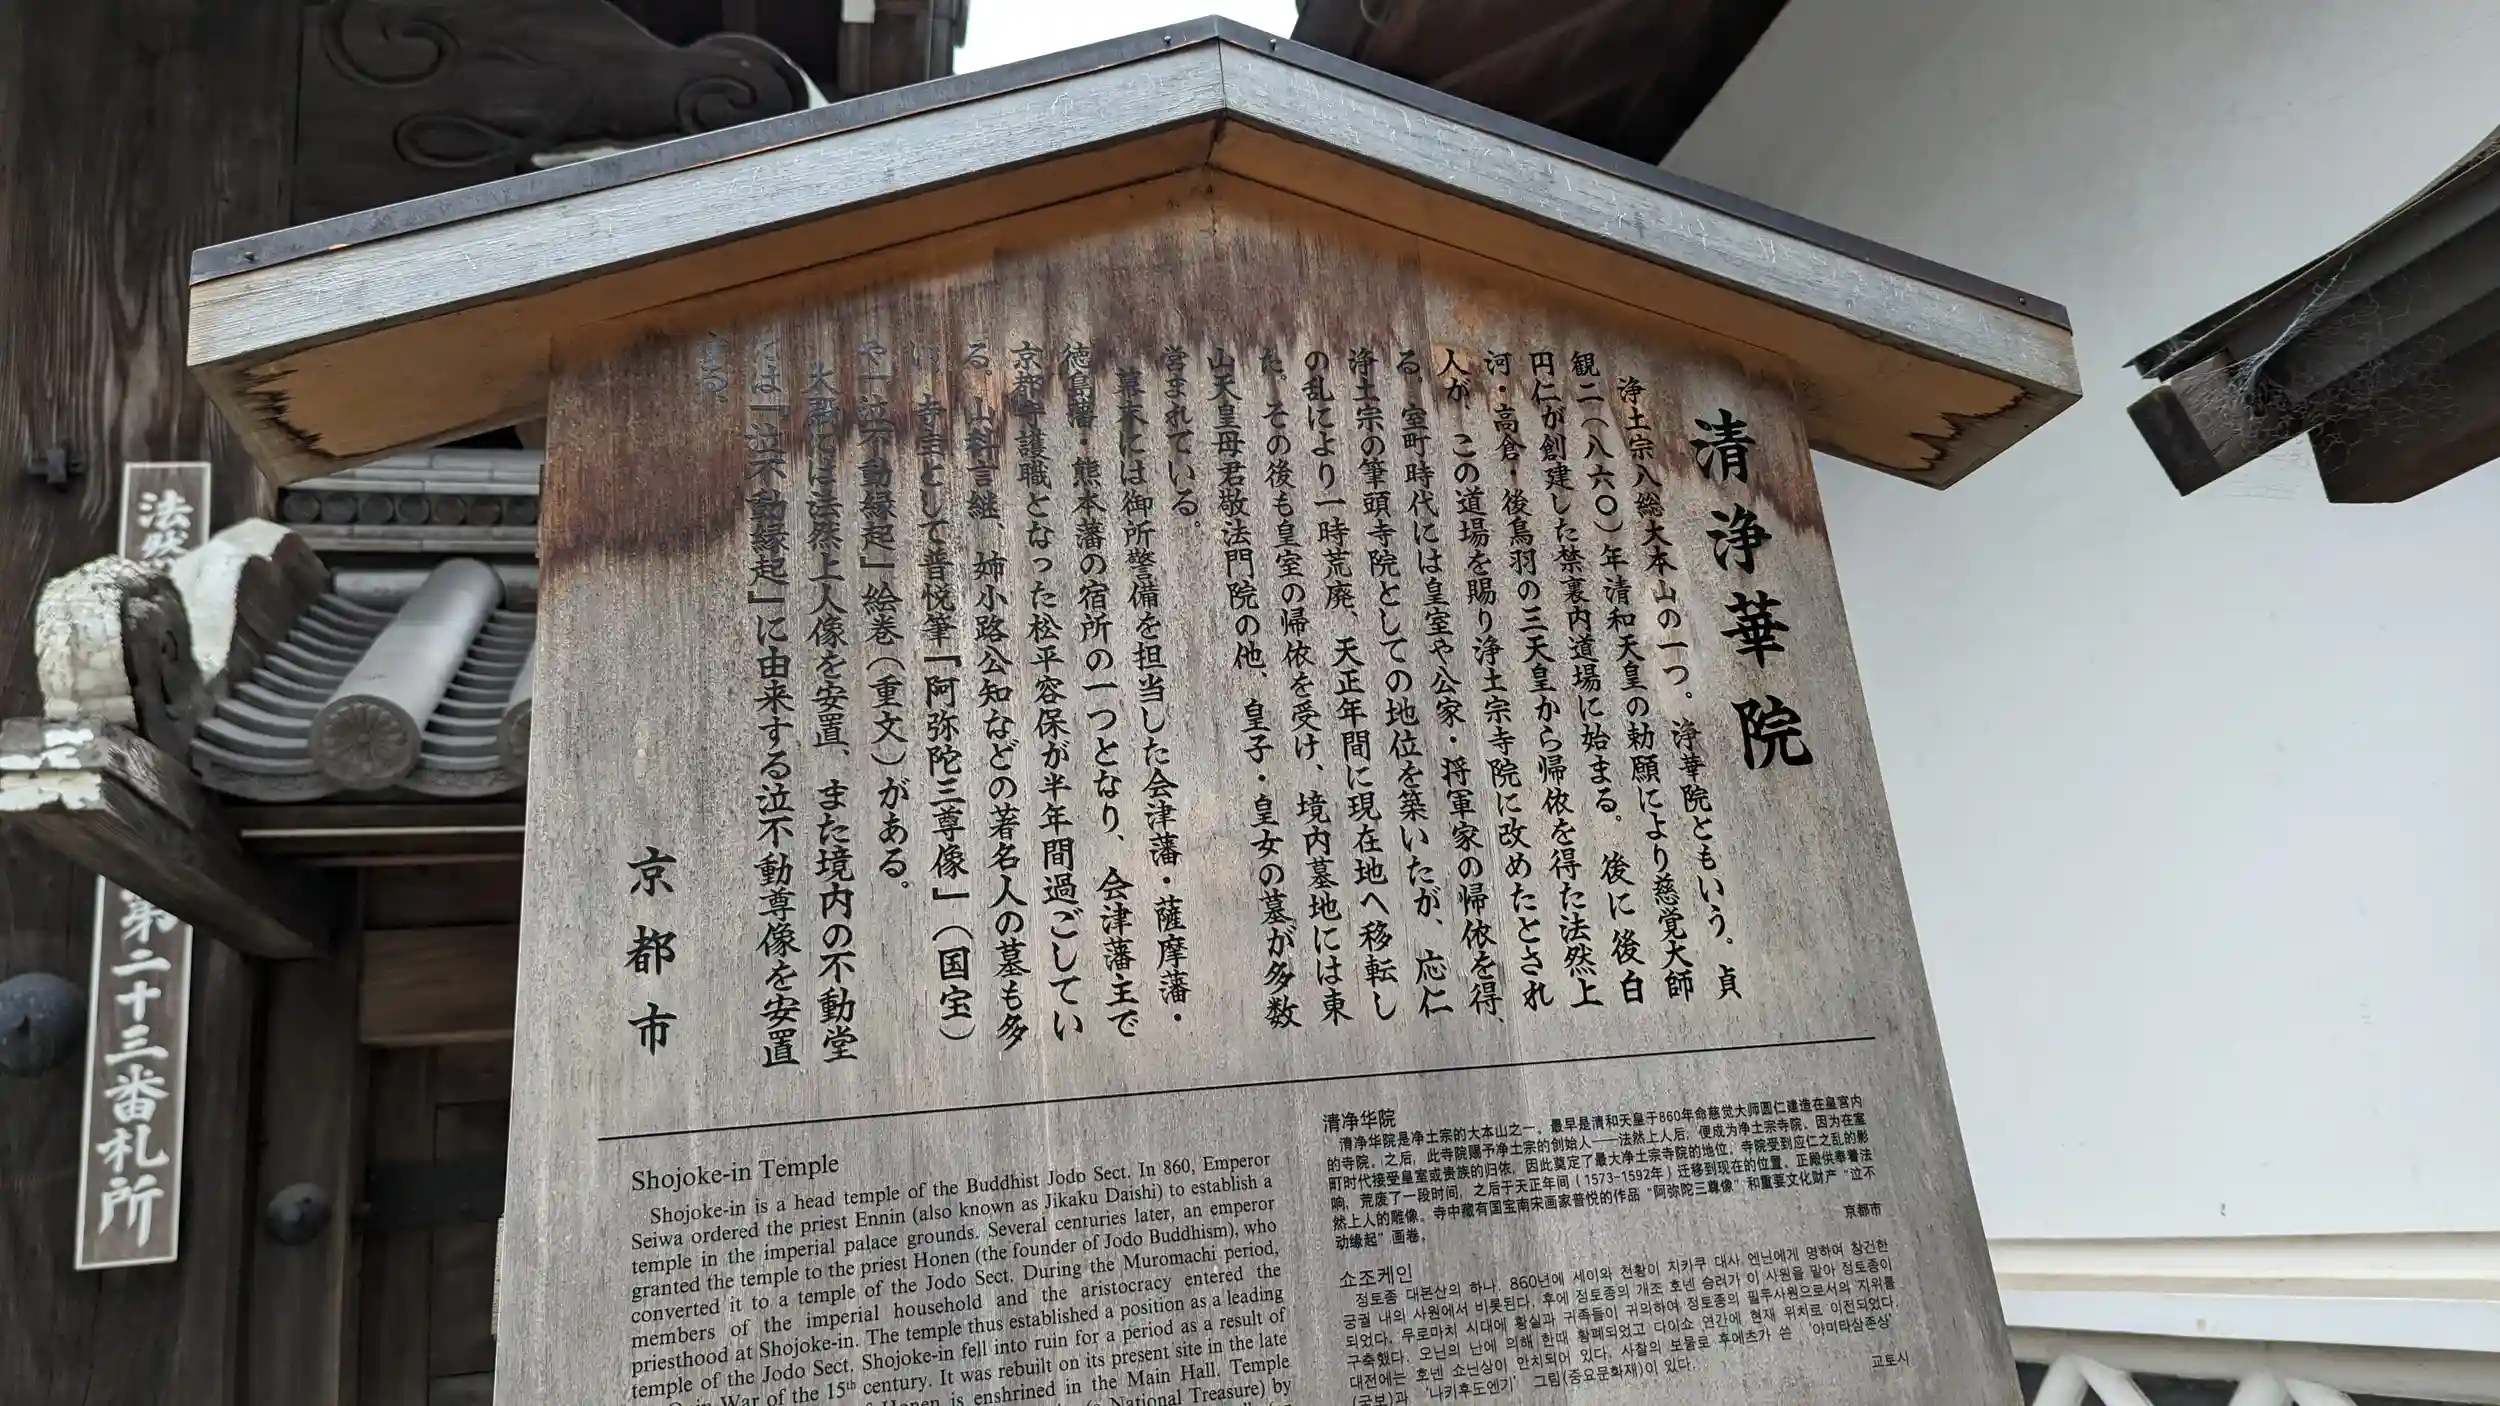 清浄華院
浄土宗八総大本山の一つ。浄華院ともいう。貞
観二(八六〇)年清和天皇の勅願により慈覚大師
円仁が創建した禁裏内道場に始まる。後に後白
河・高倉・後鳥羽の三天皇から帰依を得た法然上
人が、この道場を賜り浄土宗寺院に改めたとされ
る。室町時代には皇室や公家・将軍家の帰依を得、
浄土宗の筆頭寺院としての地位を築いたが、応仁
の乱により一時荒廃、天正年間に現在地へ移転し
た。その後も皇室の帰依を受け、境内墓地には東
山天皇母君敬法門院の他、皇子・皇女の墓が多数
営まれている。
幕末には御所警備を担当した会津藩・薩摩藩・
徳島藩・熊本藩の宿所の一つとなり、会津藩主で
京都守護職となった松平容保が半年間過ごしてい
る。山科言継、姉小路公知などの著名人の墓も多
い。寺宝として普悦筆『阿弥陀三尊像』(国宝)
や『泣不動縁起』絵巻(重文)がある。
大殿には法然上人像を安置、また境内の不動堂
には『泣不動縁起』に由来する泣不動尊像を安置
する。
京都市
Shojoke-in Temple
Shojoke-in is a head temple of the Buddhist Jodo Sect. In 860, Emperor
Seiwa ordered the priest Ennin (also known as Jikaku Daishi) to establish a
temple in the imperial palace grounds. Several centuries later, an emperor
granted the temple to the priest Honen (the founder of Jodo Buddhism), who
converted it to a temple of the Jodo Sect. During the Muromachi period,
members of the imperial household and the aristocracy entered the
priesthood at Shojoke-in. The temple thus established a position as a leading
temple of the Jodo Sect. Shojoke-in fell into ruin for a period as a result of
Onin War of the 15th century. It was rebuilt on its present site in the late
Honen is enshrined in the Main Hall. Temple
National Treasure) by
清净华院
清净华院是净土宗的大本山之一。最早是清和天皇于860年命慈觉大师圆仁建造在皇宫内
的寺院。之后，此寺院赐予净土宗的创始人——法然上人后，便成为净土宗寺院。因为在室
町时代接受皇室或贵族的归依，因此奠定了最大净土宗寺院的地位。寺院受到应仁之乱的影
响，荒废了一段时间，之后于天正年间（1573-1592年）迁移到现在的位置。正殿供奉着法
然上人的雕像。寺中藏有国宝南宋画家普悦的作品“阿弥陀三尊像”和重要文化财产“泣不
动缘起”画卷。
京都市
쇼조케인
정토종 대본산의 하나. 860년에 세이와 천황이 지카쿠 대사 엔닌에게 명하여 창건한
궁궐 내의 사원에서 비롯된다. 후에 정토종의 개조 호넨 승려가 이 사원을 맡아 정토종이
되었다. 무로마치 시대에 황실과 귀족들이 귀의하여 정토종의 필두사원으로서의 지위를
구축했다. 오닌의 난에 의해 한때 황폐되었고 다이쇼 연간에 현재 위치로 이전되었다.
대전에는 호넨 쇼닌상이 안치되어 있다. 사찰의 보물로 후에츠가 쓴 ‘아미타삼존상’
(국보)과 ‘나키후도엔기’ 그림(중요문화재)이 있다.
교토시
法然
第二十三番札所